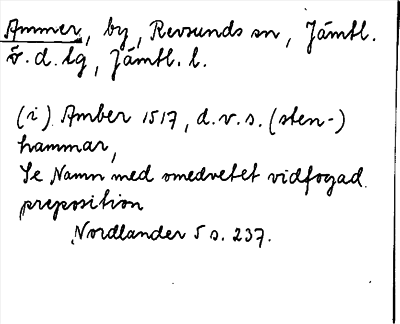 Ammer, by, Revsunds sn, Jämtl.
ö. d. tg, Jämtl. l.
(i) Amber 1517, d.v.s. (sten-)
hammar,
Se Namn med omedvetet vidfogad
preposition
Nordlander 5 s. 237.